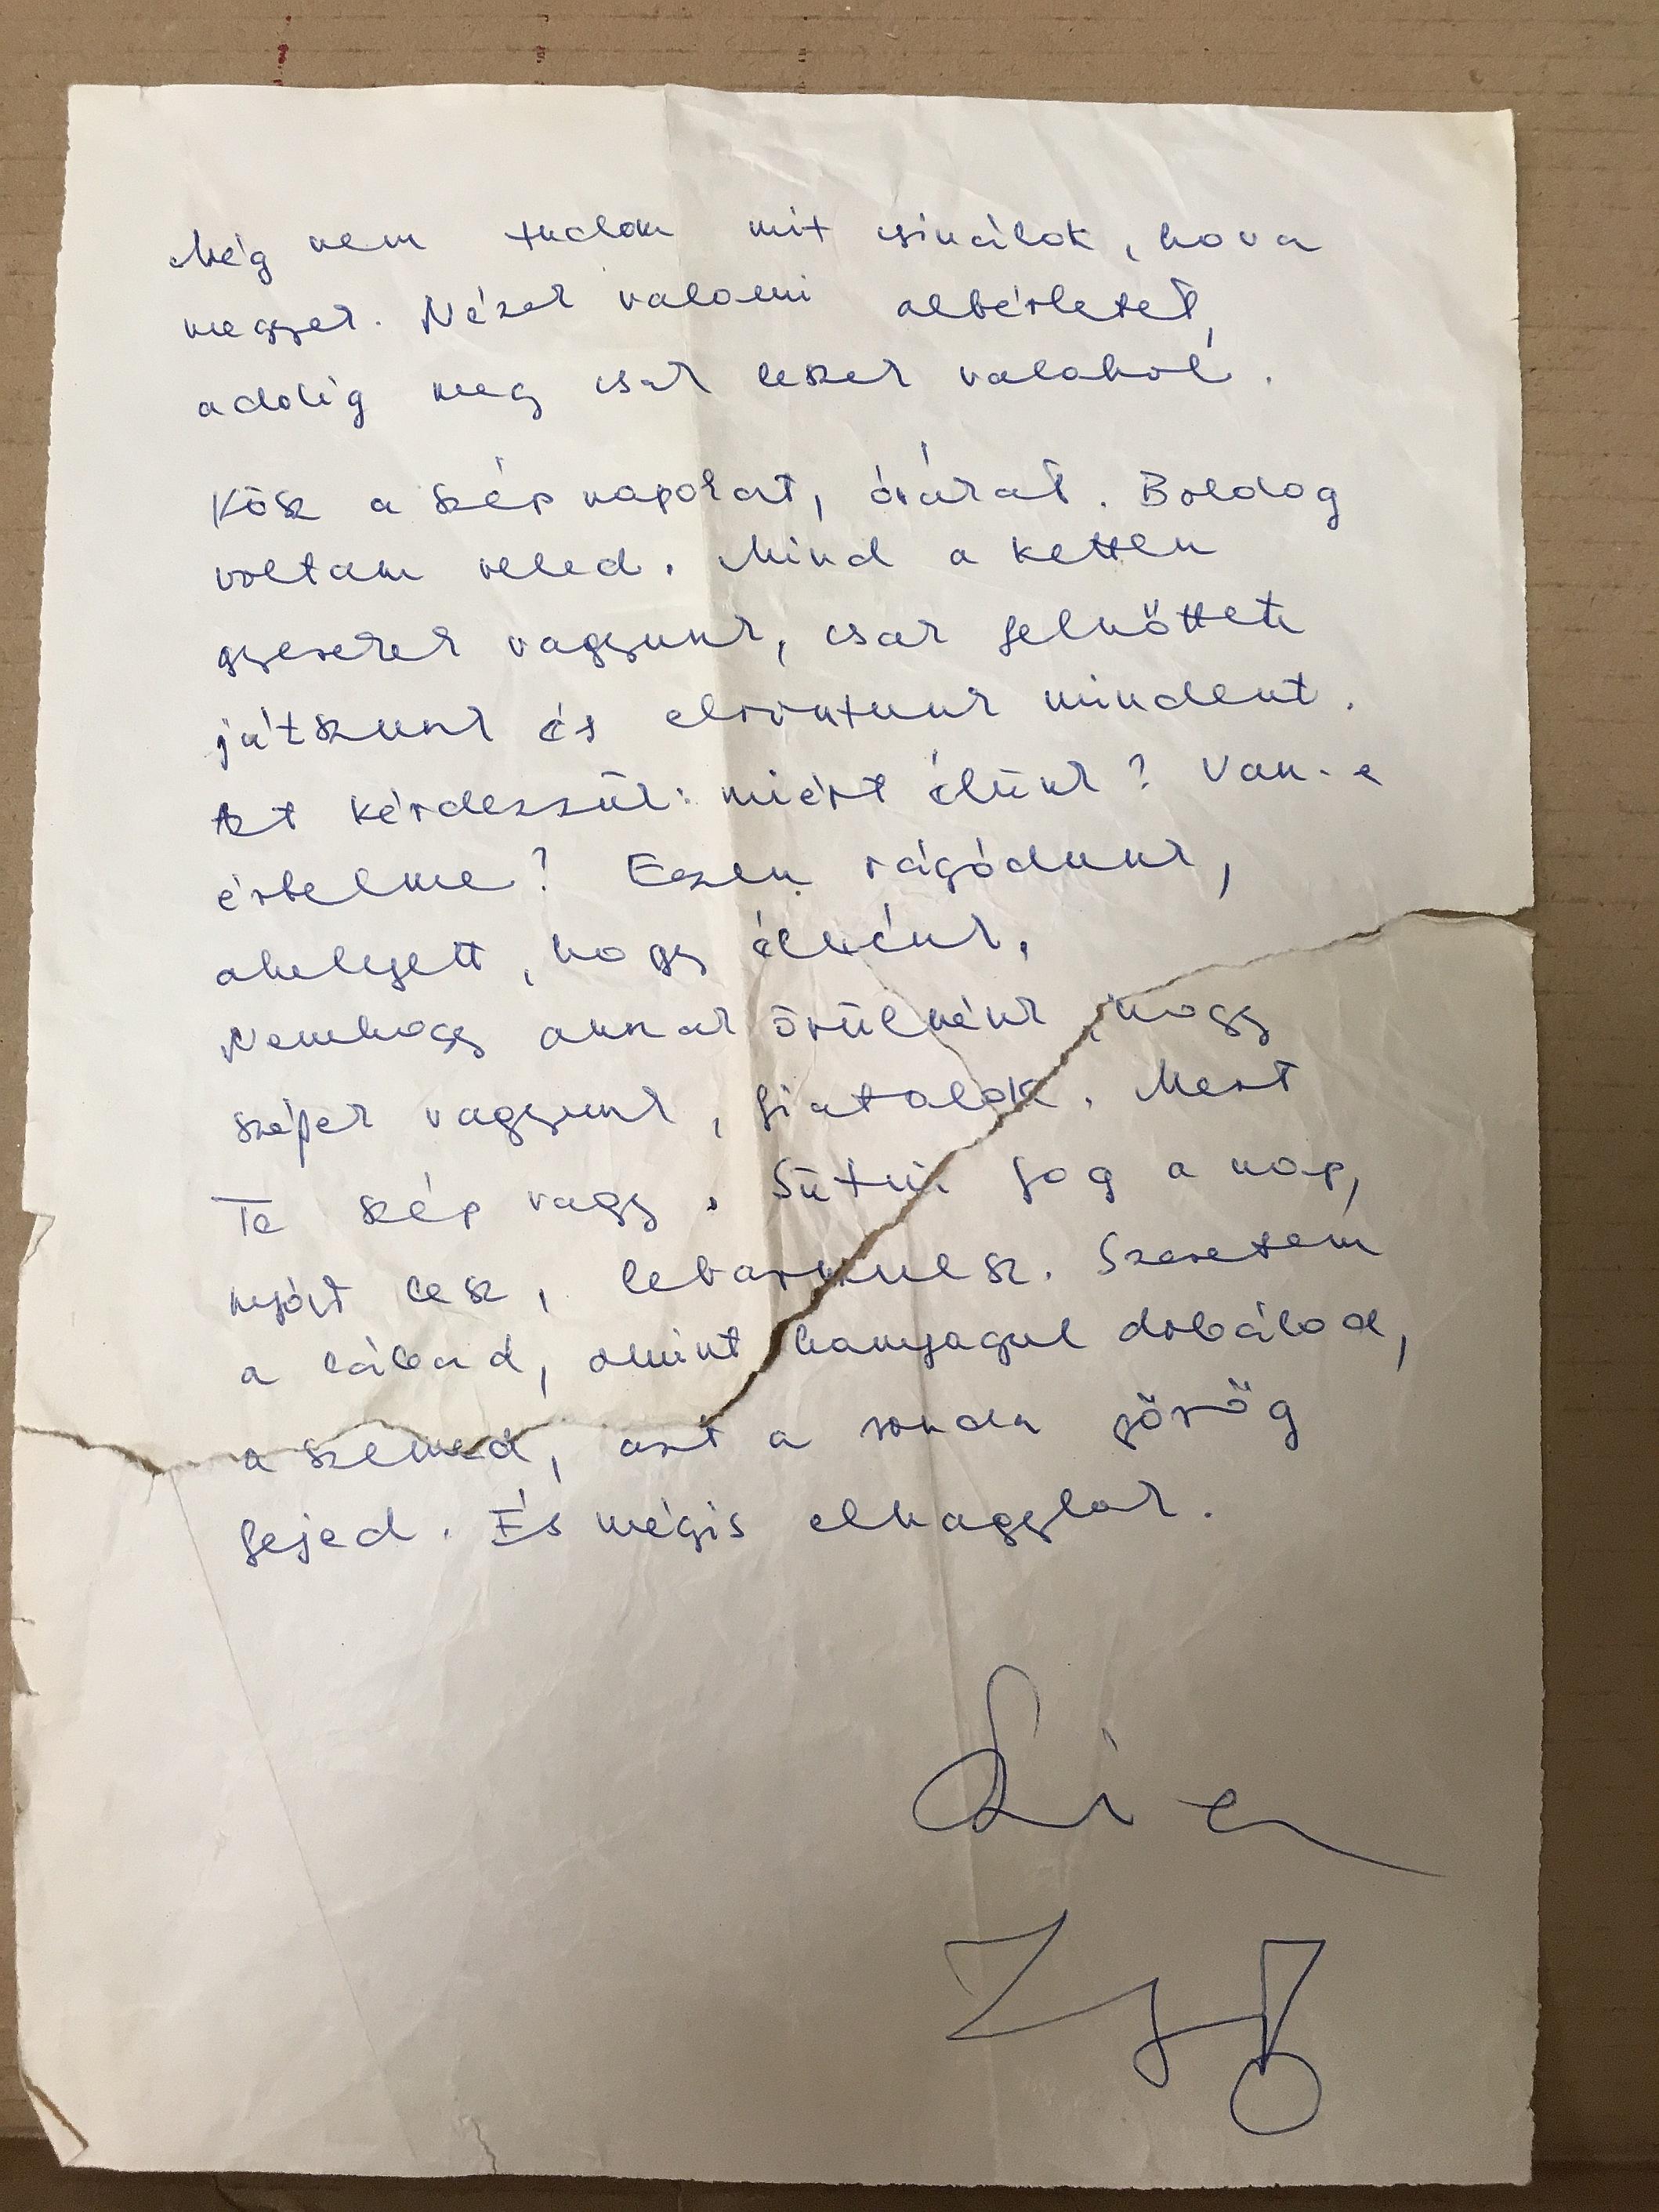 Még nem tudom mit csinálok, hova
megyek. Nézek valami albérletet,
addig meg csak leszek valahol.
Kösz a szép napokat, órákat. Boldog
voltam veled. Mind a ketten
gyerekek vagyunk, csak felnőttet
játszunk és elrontunk mindent.
Azt kérdezzük: miért élünk? Van-e
értelme? Ezen rágódunk,
ahelyett, hogy élnénk.
Nemhogy annak örülnénk, hogy
szépek vagyunk, fiatalok. Mert
Te szép vagy. Sütni fog a nap,
nyár lesz, lebarnulsz. Szeretem
a lábad, amint hanyagul dobálod,
a szemed, azt a ronda görög
fejed. És mégis elhagylak.